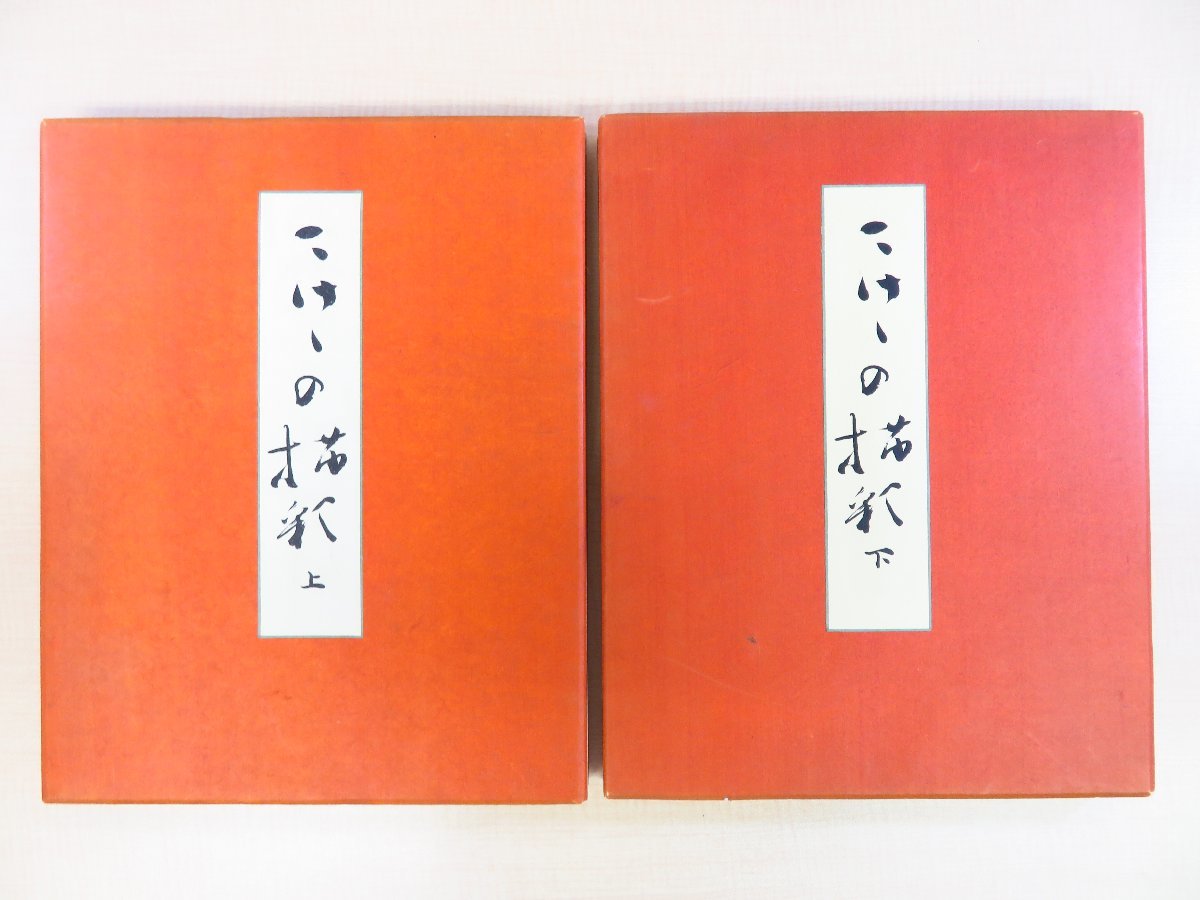 こけしの描彩 上
こけしの描彩 下